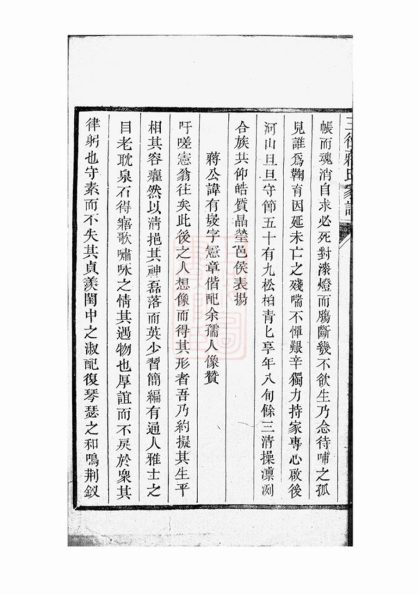 帳而魂消自求必死對漆燈而腸斷幾不欲生乃念待哺之孤
見誰爲鞠育因延未亡之殘喘不憚艱辛獨力持家專心啟後
河山旦旦守節五十有九松柏青青享年八旬餘三清操凛冽
合族共仰皓質晶瑩邑侯表揚
蔣公諱有
字憲章偕配余孺人像贊
吁嗟憲翁往矣此後之人想像而得其形者吾乃約擬其生平
相其容癯然以清挹其神磊落而英少習簡編有通人雅士之
目老耽泉石得寤歌嘯咏之情其遇物也厚誼而不戾於衆其
律躬也守素而不失其貞羨閨中之淑配復琴瑟之和鳴荆釵